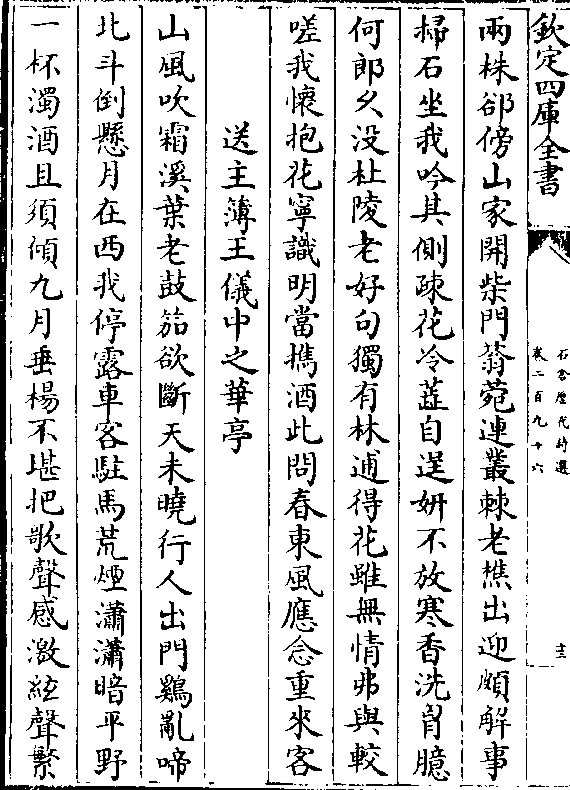 欽定四庫全書
石倉歷代詩選
卷二百九十六
十三
兩株郤傍山家開柴門蓊菀連叢棘老樵出迎頗解事
掃石坐我吟其側疎花冷蘂自逞妍不放寒香洗胷臆
何郎久没杜陵老好句獨有林逋得花雖無情弗與較
嗟我懷抱花寧識明當攜酒此問春東風應念重來客
送主簿王儀中之華亭
山風吹霜溪葉老鼓笳欲斷天未曉行人出門鷄亂啼
北斗倒懸月在西我停露車客駐馬荒煙瀟瀟暗平野
一杯濁酒且須傾九月垂楊不堪把歌聲感激絃聲繁